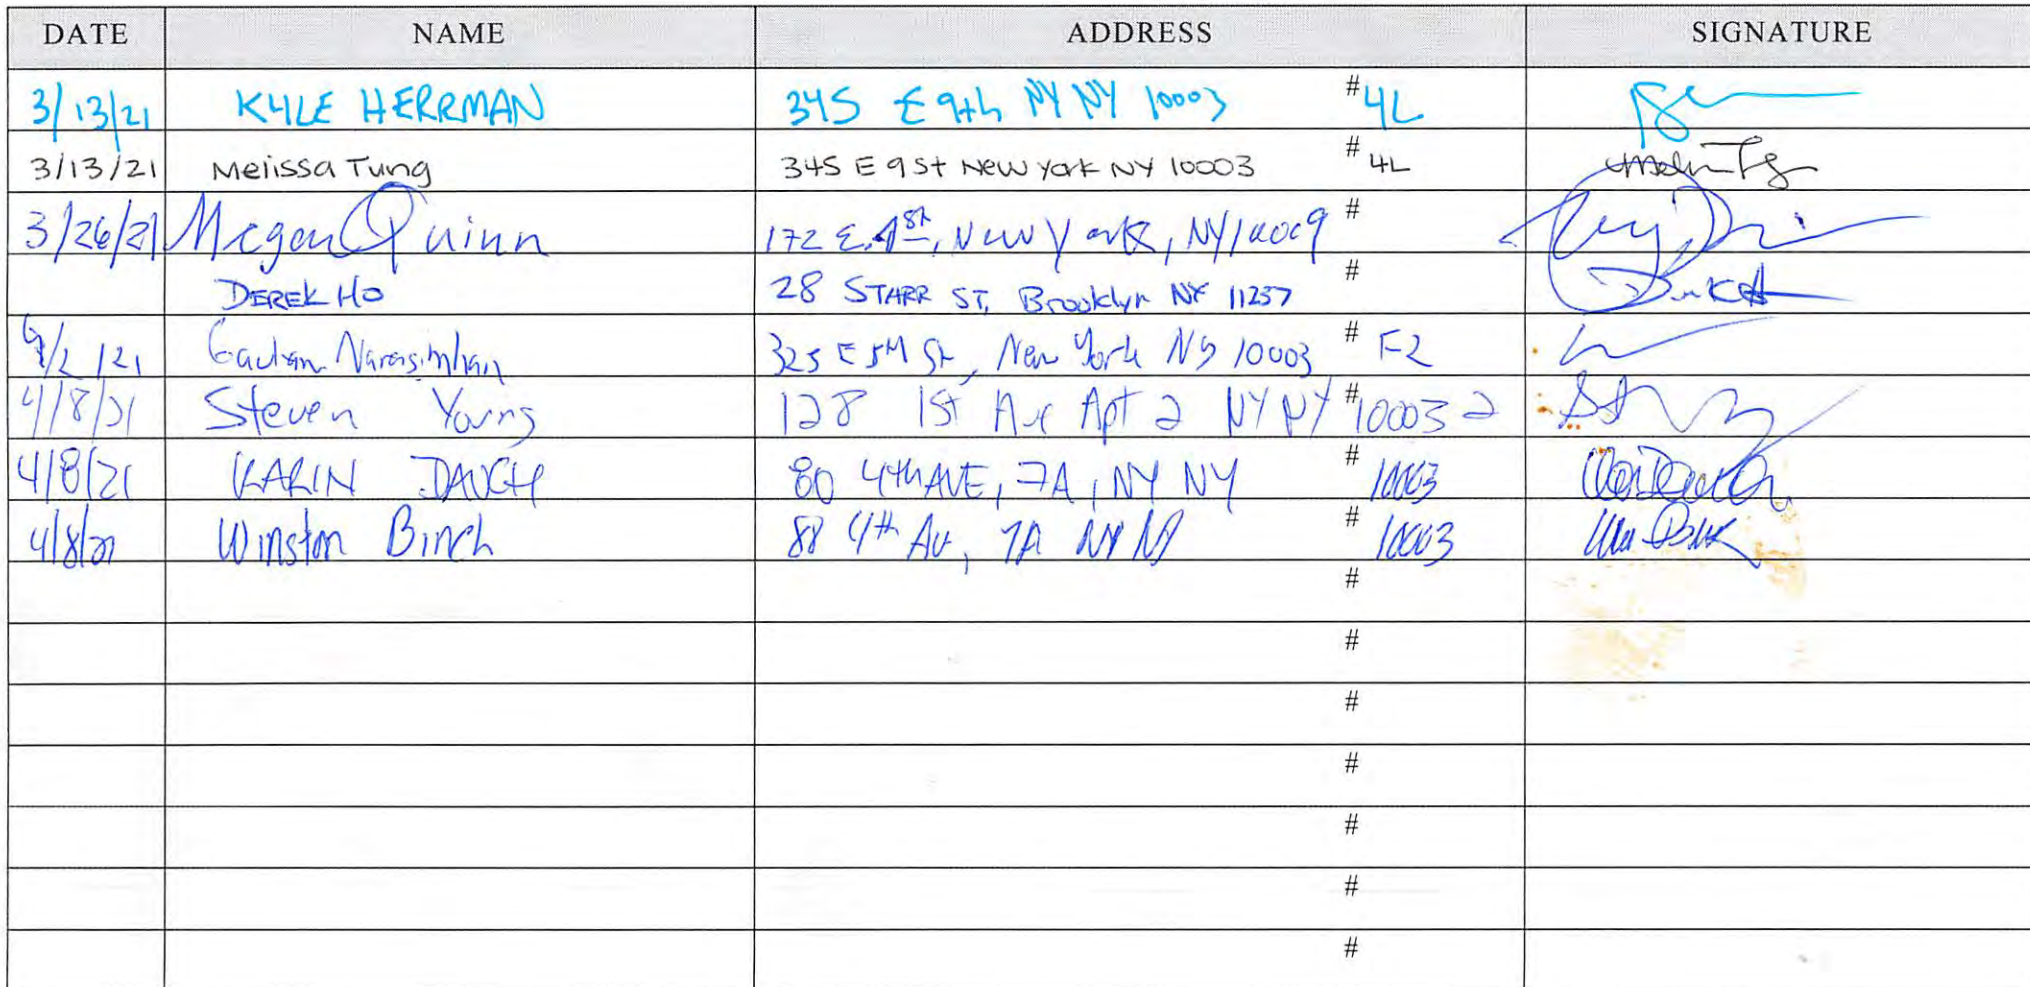 DATE NAME ADDRESS SIGNATURE
3/13/21 KYLE HERRMAN 345 E 9th NY NY 10003 # 4L
3/13/21 Melissa Tung 345 E 9 St New York NY 10003 # 4L
3/26/21 Megan Quinn 172 E. St, New York, NY 10009 #
DEREK HO 28 STARR ST, Brooklyn NY 11237 #
4/2/21 Gautam Narasimhan 325 E 5th St, New York NY 10003 # F2
4/8/21 Steven Young 128 1st Ave Apt 2 NY NY # 10003 2
4/8/21 KARIN DAUCH 80 4th AVE, 7A, NY NY # 10003
4/8/21 Winston Binch 4th Av, 7A NY NY # 10003
#
#
#
#
#
#
#